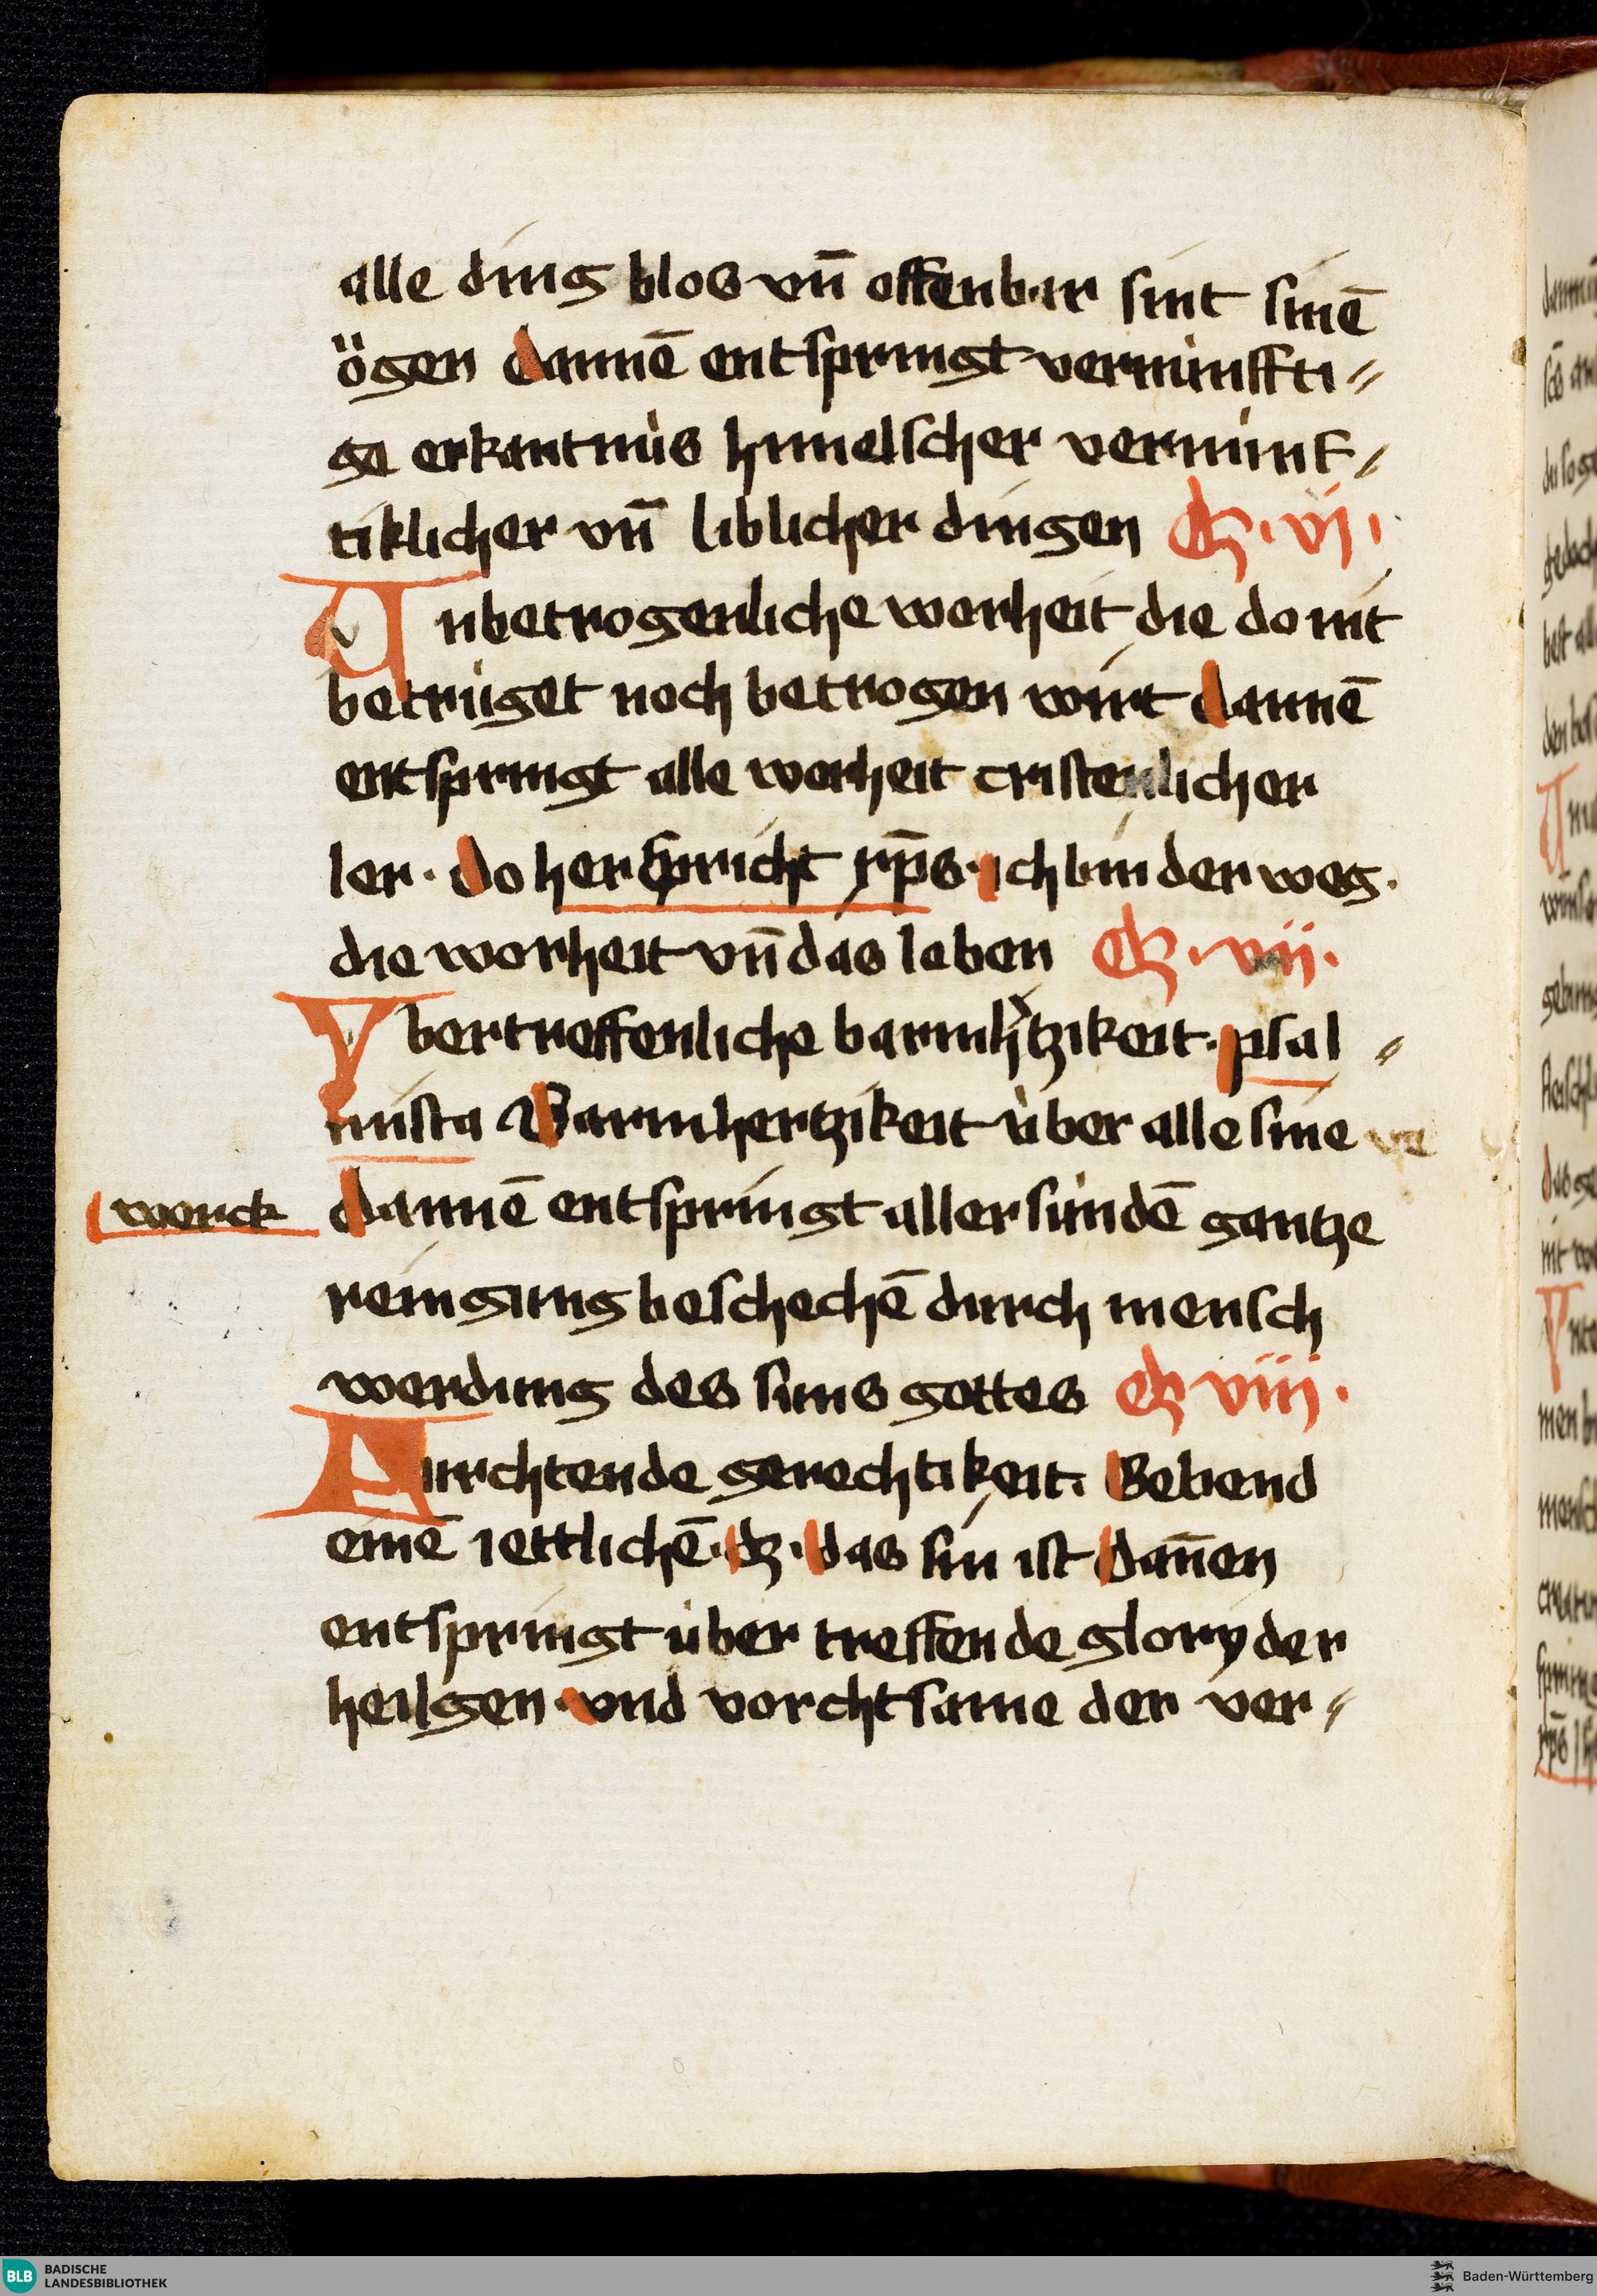 alle ding blos vn̄ offenbar sint sinē
ögen dannē entspringt vernu̇nffti〃
ge erkantnu̇s himelscher vernu̇nf〃
tiklicher vn̄ liblicher dingen Eʒ · vj ·
Unbetrogenliche worheit die do nit
betru̇get noch betrogen wirt dannē
entspringt alle worheit cristenlicher
ler · do her spricht xp̄s · ich bin der weg ·
die worheit vn̄ das leben Eʒ · vij ·
Vbertreffenliche barmh͛tzikeit · psal〃
mista Barmhertzikeit u̇ber alle sine
werck
dannē entspringt aller su̇ndē gantze
reingung beschechē durch mensch
werdung des suns gottes Eʒ viij ·
Furchtende gerechtikeit. Gebend
einē iettlichē · dʒ · das sin ist Dan̄en
entspringt u̇ber treffende glory der
heilgen · vnd vorchtsame der ver〃
BLB BADISCHE
LANDESBIBLIOTHEK
Baden-Württemberg